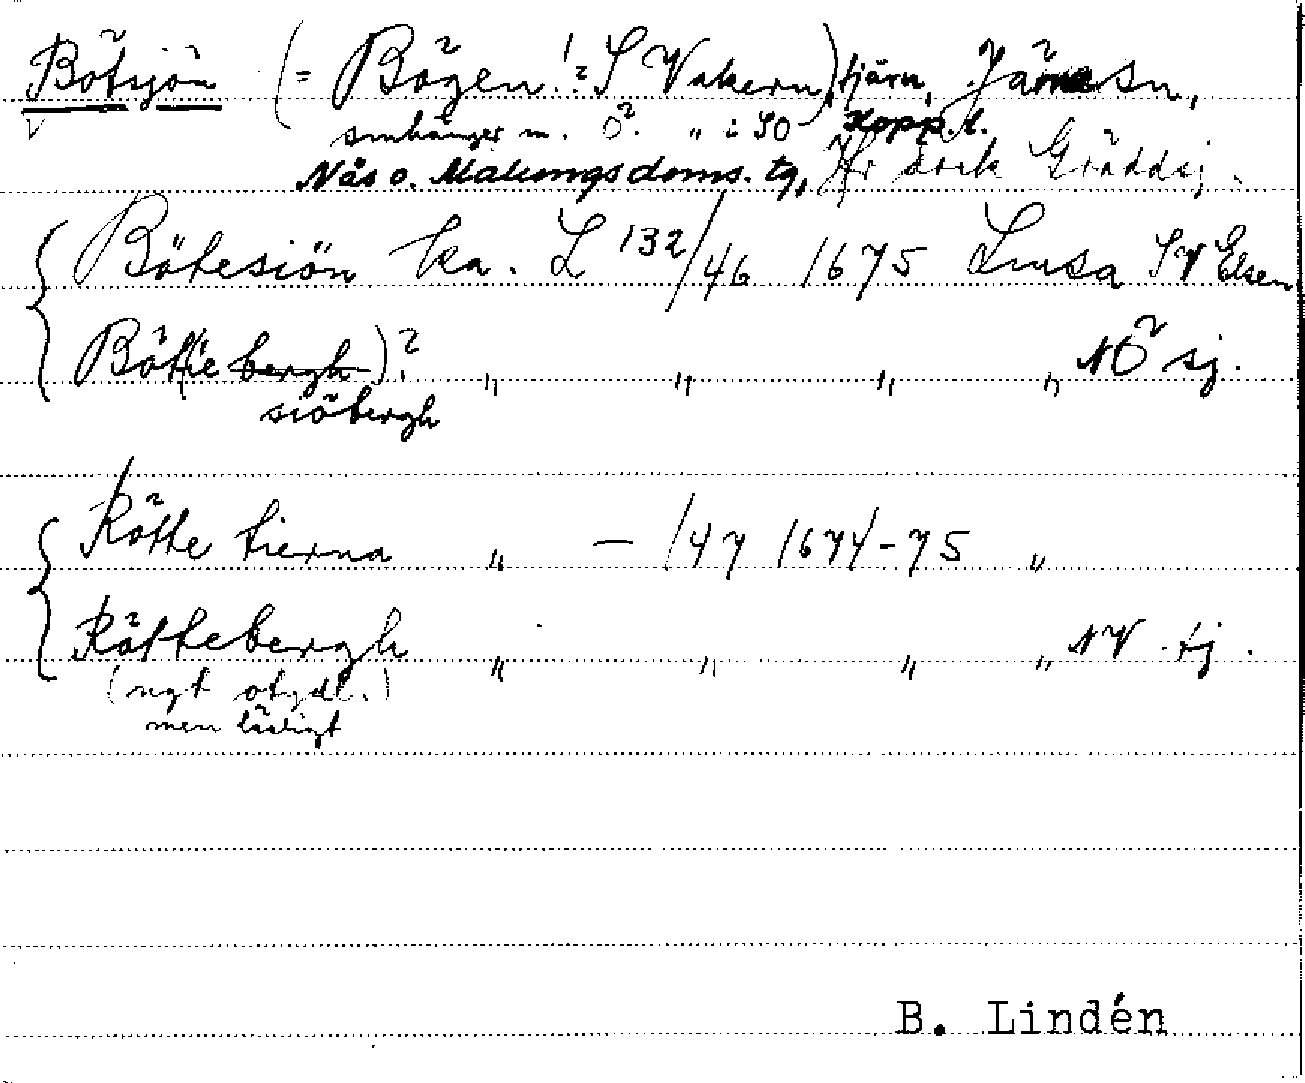 Bötsjön (= Bögen! ? S Vakern), tjärn, Järna sn,
smhänger m. Ö. " i SO Kopp. l.
Nås o. Malungs doms. tg, Gräddsj.
Bötesiön ka. L 132/46 1675 Lmsa SV Elsen
Böt(tie bergh)? " " " " NÖ sj.
siöbergh
Rötte tierna " — /47 1674-75 "
Röttebergh " " " " NV tj.
(ngt otydl.)
men läsligt
B. Lindén